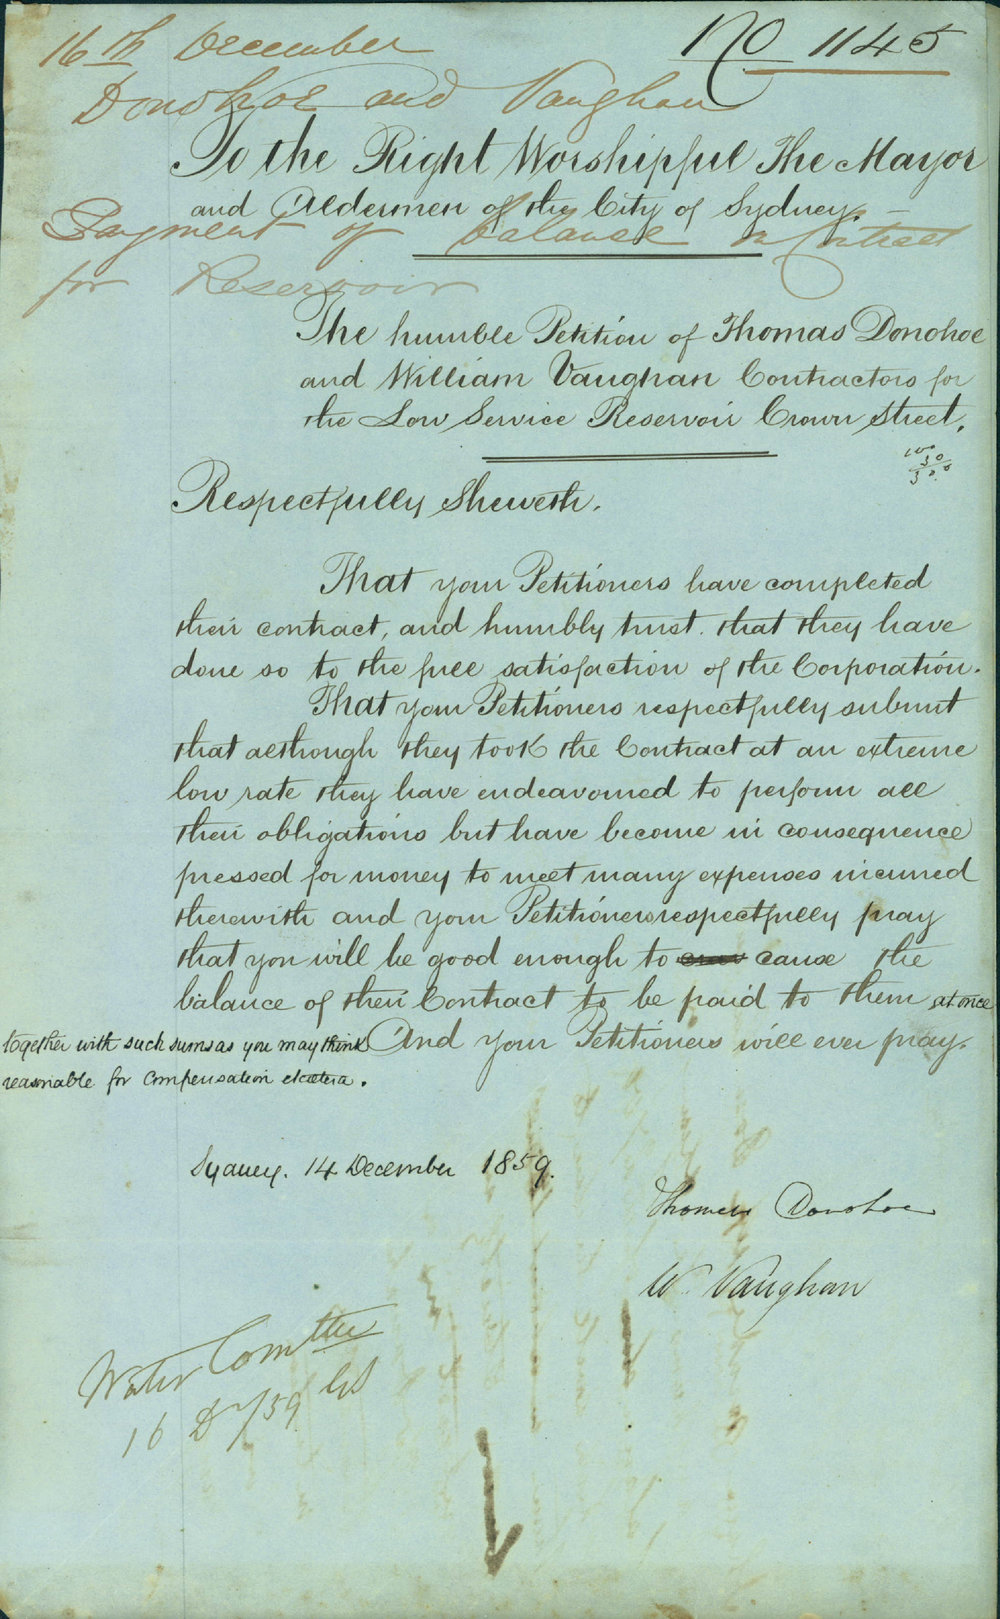 16th December
No 1145
Donohoe and Vaughan
To the Right Worshipful The Mayor
and Aldermen of the City of Sydney.
Payment of balance on Contract
for Reservoir
The humble Petition of Thomas Donohoe
and William Vaughan Contractors for
the Low Service Reservoir Crown Street.
Respectfully Sheweth.
That your Petitioners have completed
their contract, and humbly trust that they have
done so to the full satisfaction of the Corporation.
That your Petitioners respectfully submit
that although they took the Contract at an extreme
low rate they have endeavoured to perform all
their obligations but have become in consequence
pressed for money to meet many expenses incurred
therewith and your Petitioners respectfully pray
that you will be good enough to cause the
balance of their Contract to be paid to them at once
together with such sums as you may think And your Petitioners will ever pray.
reasonable for compensation etcetera.
Sydney. 14 December 1859.
Thomas Donohoe
W. Vaughan
Water Comttee
16 Dr/59